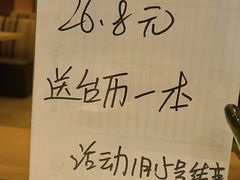 26.8元
送台历一本
活动1月5号结束